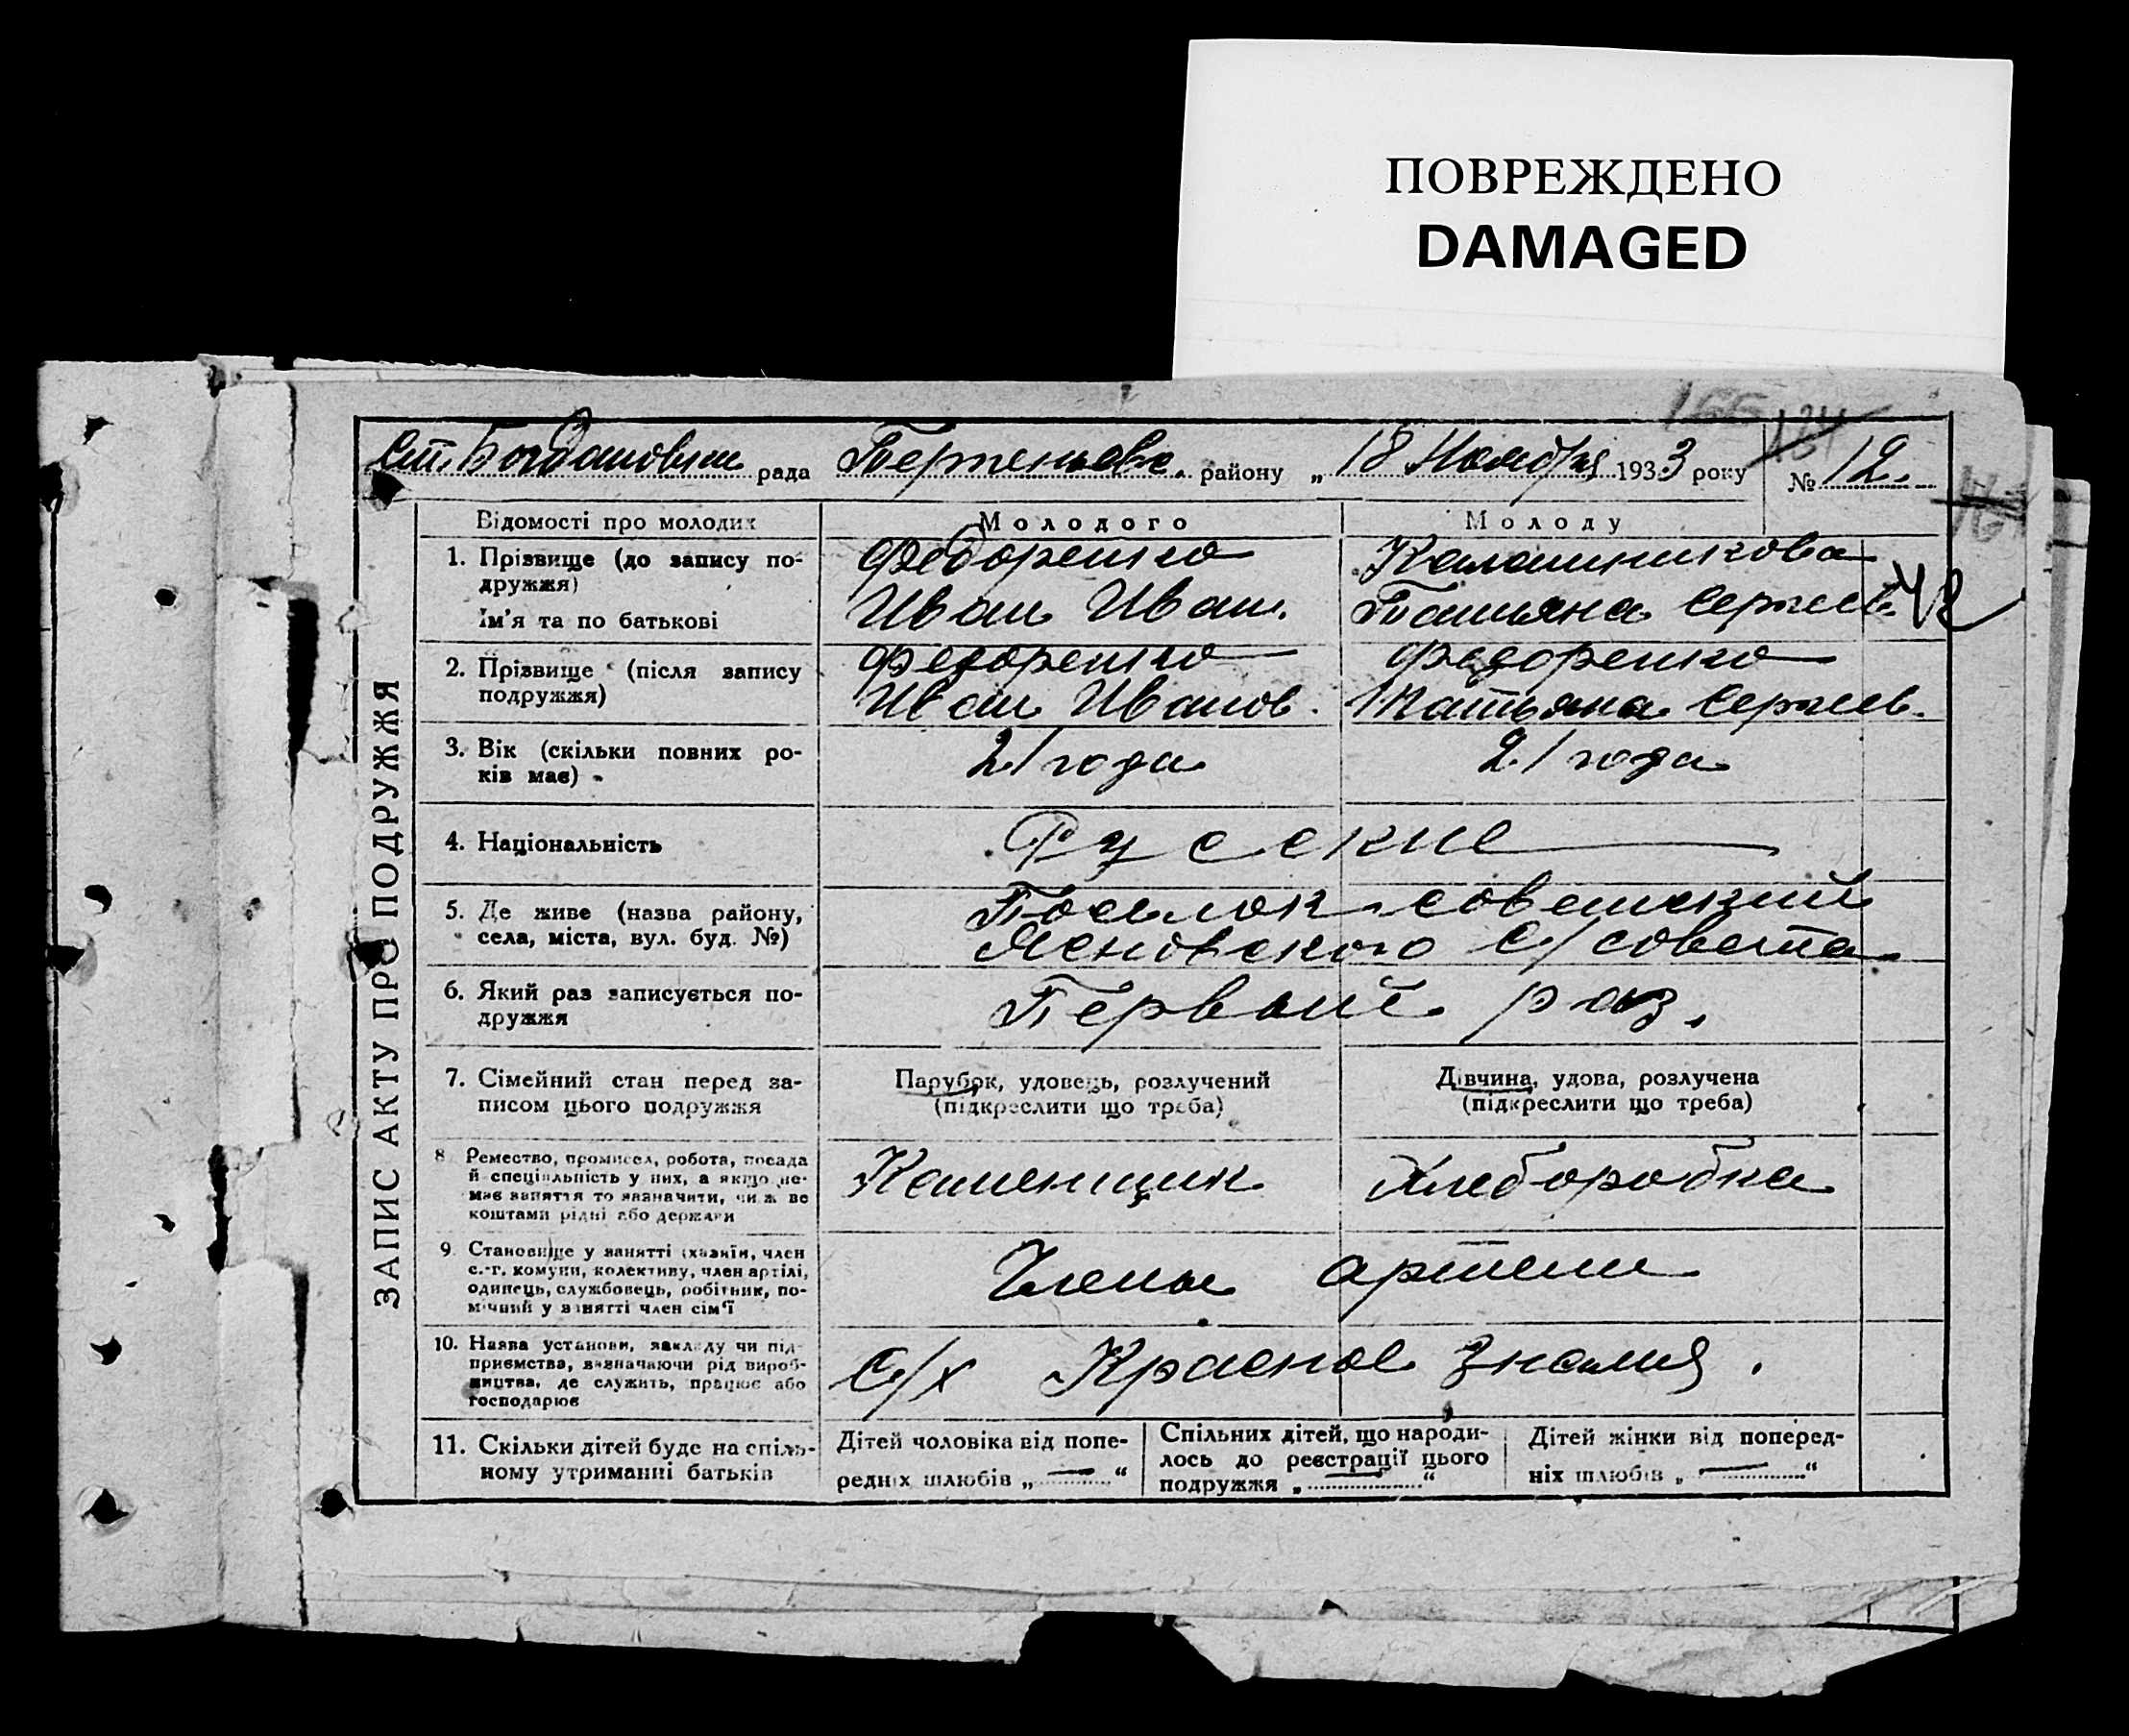 ПОВРЕЖДЕНО
DAMAGED
рада района району „ 18 Ноября 1933 року № 12.
ЗАПИС АКТУ ПРО ПОДРУЖЖЯ
Відомості про молодих Молодого Молоду
1. Прізвище (до запису по-
дружжя)
Федоренко Калашникова
Ім'я та по батькові Иван Иван. Татьяна Сергеев.
2. Прізвище (після запису
подружжя)
Федоренко Федоренко
Иван Иванов. Татьяна Сергеев.
3. Вік (скільки повних ро-
ків має)
21 года 21 года
4. Національність Русские
5. Де живе (назва району,
села, міста, вул. буд. №)
Поселок советский
Ясеновского с/совета
6. Який раз записується по-
дружжя
Первый раз.
7. Сімейний стан перед за-
писом цього подружжя
Парубок, удовець, розлучений
(підкреслити що треба)
Дівчина, удова, розлучена
(підкреслити що треба)
8. Ремество, промисел, робота, посада
й спеціяльність у них, а якщо не-
має заняття то зазначити, чиїм
коштами рідні або держави
Каменщик Хлеборобка
9. Становище у занятті (хазяїн, член
с.-г. комуни, колективу, член артілі,
одинець, службовець, робітник, по-
мічний у занятті член сім'ї
Члены артели
10. Назва установи, закладу чи під-
приємства, зазначаючи рід вироб-
ництва, де служить, працює або
господарює
С/х Красное знамя.
11. Скільки дітей буде на спіль-
ному утриманні батьків
Дітей чоловіка від попе-
редніх шлюбів „ — “
Спільних дітей, що народи-
лось до реєстрації цього
подружжя „ — “
Дітей жінки від поперед-
ніх шлюбів „ — “